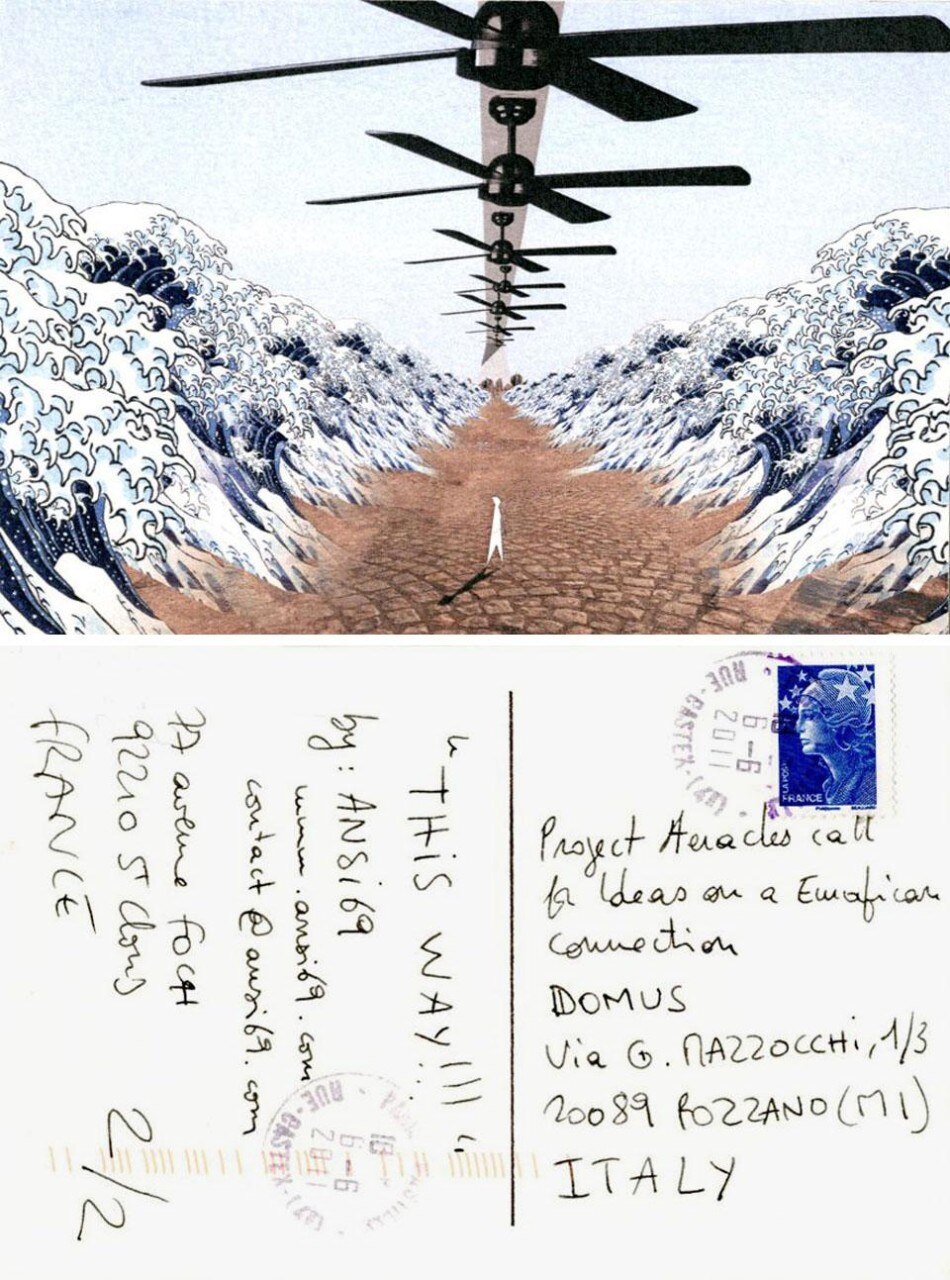 " THiS WAY!!! "
by : ANSi69
www.ansi69.com
contact@ansi69.com
avenue FOCH
92210 ST Cloud
FRANCE
2/2
RUE-CASTEX-
6-6
2011
LA POSTE
FRANCE
Project Heracles call
for Ideas on a Eurafrican
connection
DOMUS
Via G. MAZZOCCHi, 1/3
20089 ROZZANO (MI)
ITALY
RUE-CASTEX-
6-6
2011